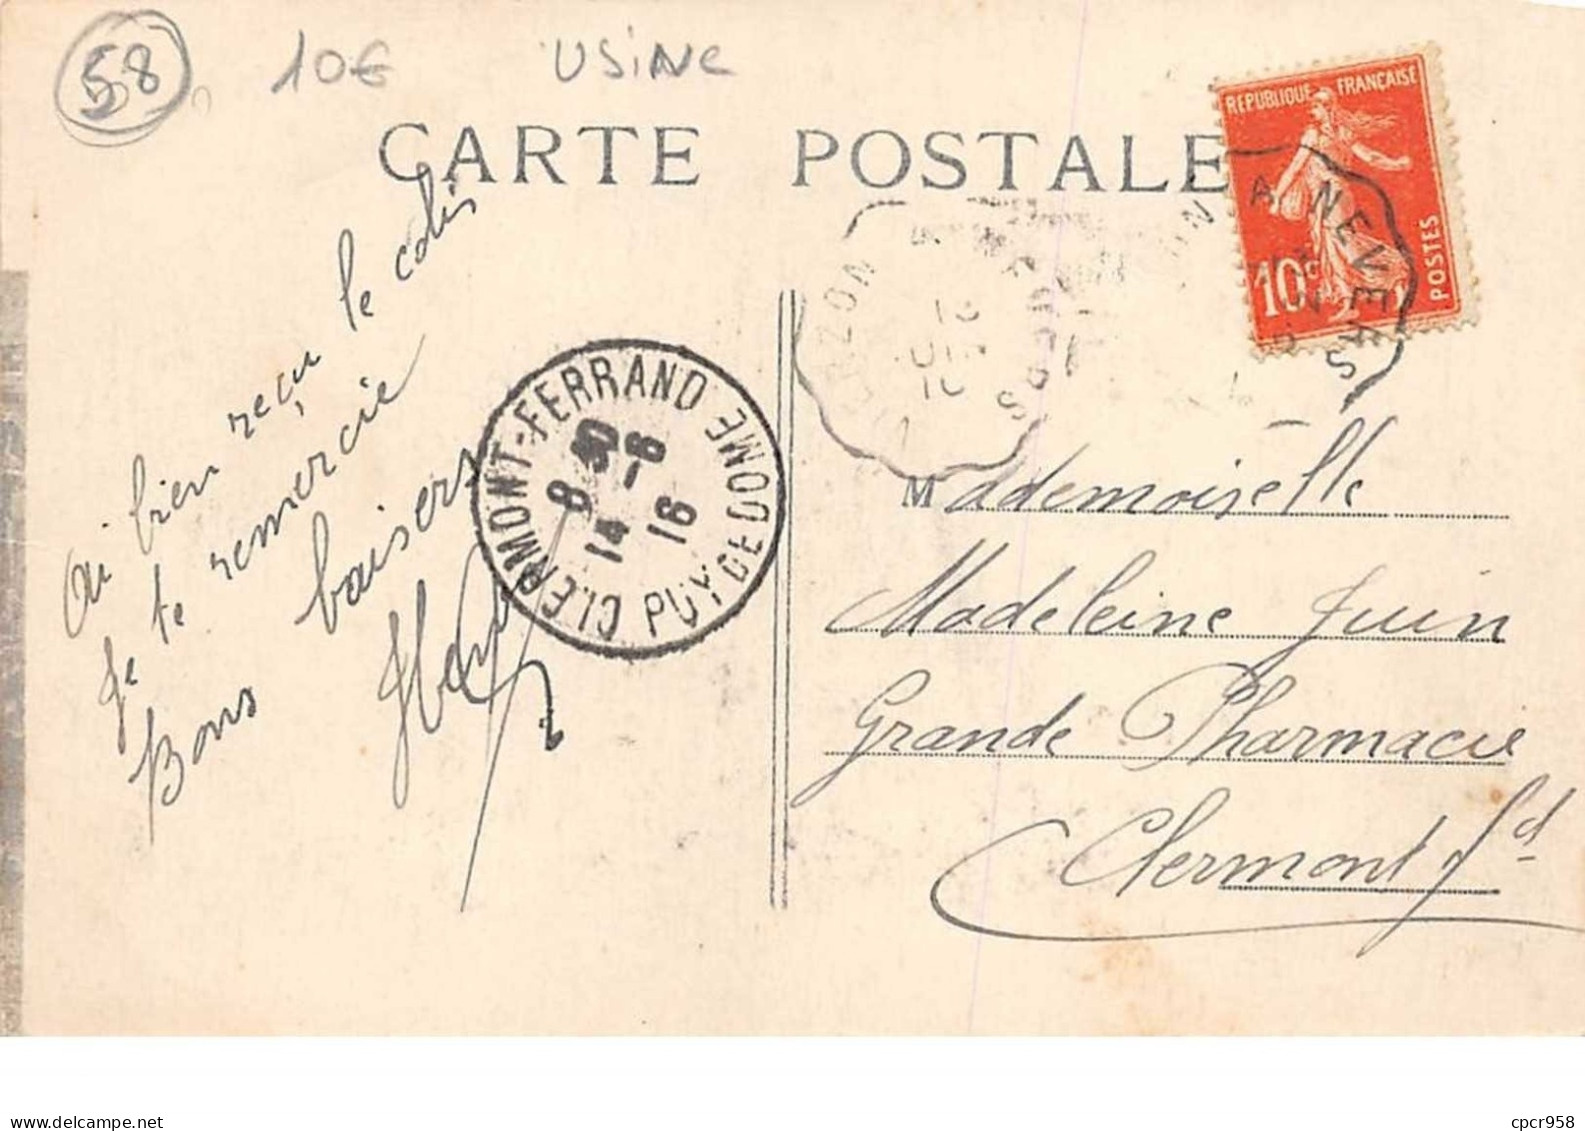 58 10€ USINE
CARTE POSTALE
REPUBLIQUE FRANÇAISE
10c POSTES
A NEVERS
VIERZON
13
JUIN
CLERMONT-FERRAND PUY DE DOME
8 30
14 -6
16
Ai bien reçu le colis
Je te remercie
Bons baisers
Mademoiselle
Madeleine Juin
Grande Pharmacie
Clermont Fd
cpcr958